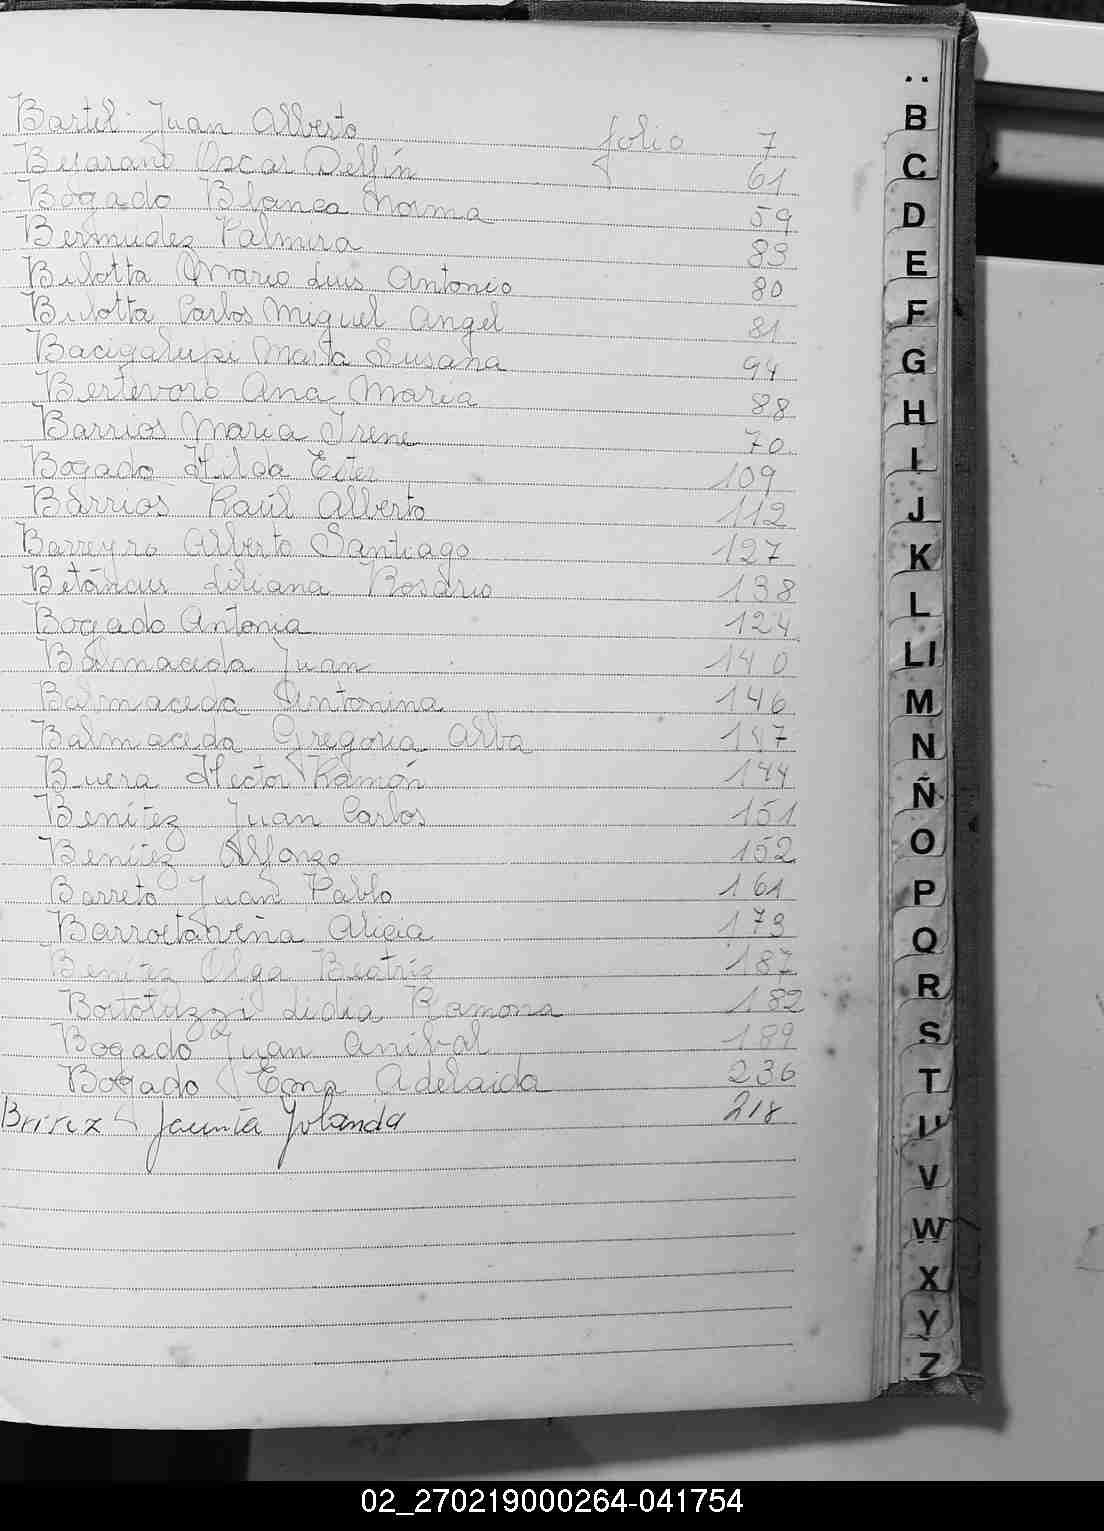 Bartel Juan Alberto folio 7
Bejarano Oscar Delfín 61
Bogado Blanca Norma 59
Bermudez Palmira 83
Bilotta Mario Luis Antonio 80
Bilotta Carlos Miguel Angel 81
Bacigalupi Marta Susana 94
Bertevoro Ana Maria 88
Barrios Maria Irene 70
Bogado Hilda Ester 109
Barrios Raúl Alberto 112
Barreyro Alberto Santiago 127
Betancur Liliana Rosario 138
Bogado Antonia 124
Balmaceda Juan 140
Balmaceda Antonina 146
Balmaceda Gregoria Alba 147
Buera Hector Ramón 144
Benítez Juan Carlos 151
Benitez Alfonzo 152
Barreto Juan Pablo 161
Barroetaveña Alicia 173
Olga Beatriz 187
Bortoluzzi Lidia Ramona 182
Bogado Juan Anibal 189
Bogado Edna Adelaida 236
Jacinta Yolanda 218
B
C
D
E
F
G
H
I
J
K
L
Ll
M
N
Ñ
O
P
Q
R
S
T
U
V
W
X
Y
Z
02_270219000264-041754